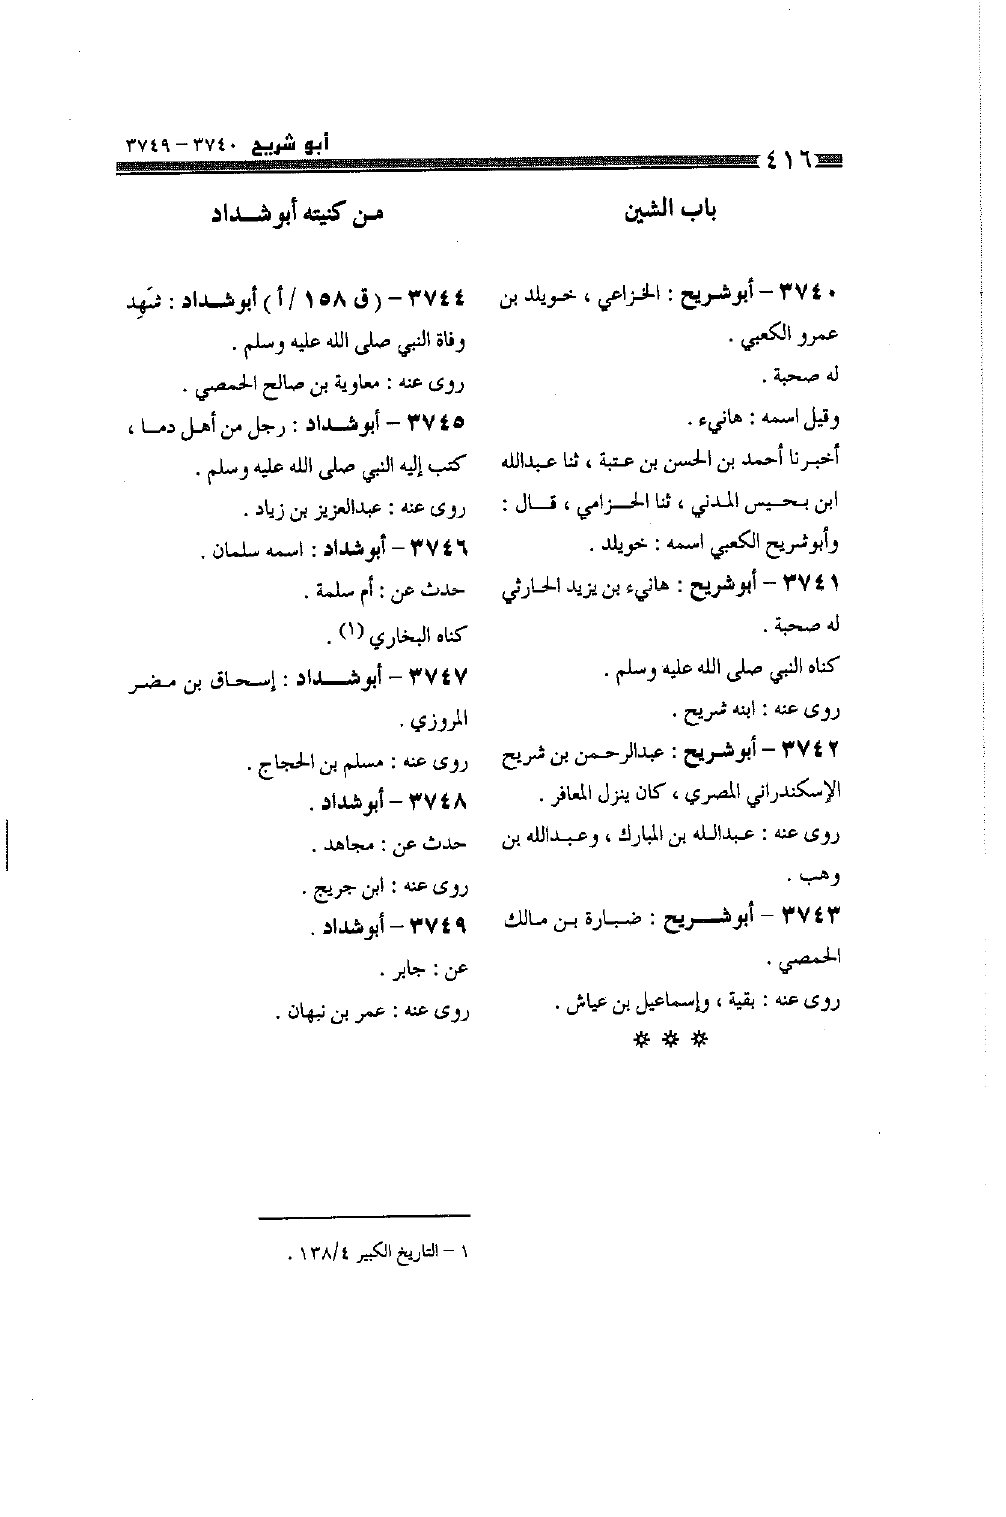 أبو شريح ٣٧٤٠ – ٣٧٤٩
٤١٦
باب الشين
٣٧٤٠ – أبوشريح : الخزاعي ، خويلد بن
عمرو الكعبي .
له صحبة .
وقيل اسمه : هانيء .
أخبرنا أحمد بن الحسن بن عتبة ، ثنا عبدالله
ابن بحيس المدني ، ثنا الحزامي ، قال :
وأبوشريح الكعبي اسمه : خويلد .
٣٧٤١ – أبوشريح : هانيء بن يزيد الحارثي
له صحبة .
كناه النبي صلى الله عليه وسلم .
روى عنه : ابنه شريح .
٣٧٤٢ – أبوشريح : عبدالرحمن بن شريح
الإسكندراني المصري ، كان ينزل المعافر .
روى عنه : عبدالله بن المبارك ، وعبدالله بن
وهب .
٣٧٤٣ – أبوشريح : ضبارة بن مالك
الحمصي .
روى عنه : بقية ، وإسماعيل بن عياش .
* * *
من كنيته أبوشداد
٣٧٤٤ – (ق ١٥٨ /أ) أبوشداد : شَهِد
وفاة النبي صلى الله عليه وسلم .
روى عنه : معاوية بن صالح الحمصي .
٣٧٤٥ – أبوشداد : رجل من أهل دما ،
كتب إليه النبي صلى الله عليه وسلم .
روى عنه : عبدالعزيز بن زياد .
٣٧٤٦ – أبوشداد : اسمه سلمان .
حدث عن : أم سلمة .
كناه البخاري (١) .
٣٧٤٧ – أبوشداد : إسحاق بن مضر
المروزي .
روى عنه : مسلم بن الحجاج .
٣٧٤٨ – أبوشداد .
حدث عن : مجاهد .
روى عنه : ابن جريج .
٣٧٤٩ – أبوشداد .
عن : جابر .
روى عنه : عمر بن نبهان .
١ – التاريخ الكبير ١٣٨/٤ .